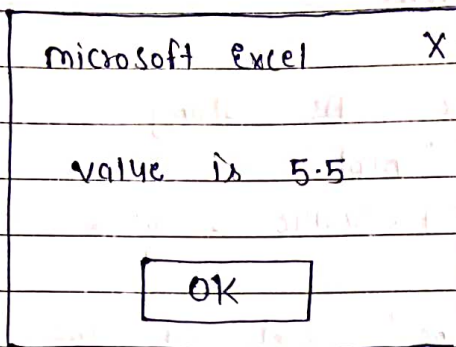 microsoft Excel X
value is 5.5
OK